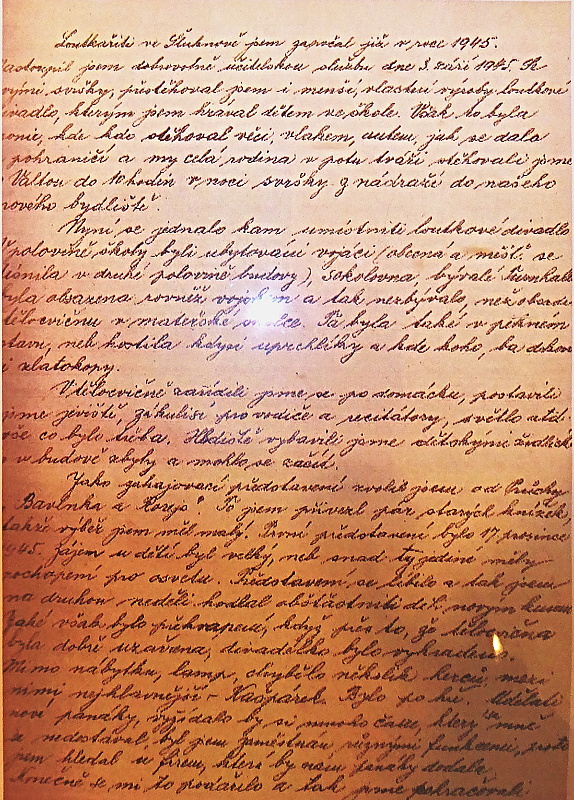 Loutkařiti ve Sluknově jsem započal již v roce 1945.
nastoupil jsem dobrovolně učitelskou službu dne 3. září 1945. Se
svými svršky, přistěhoval jsem i menší, vlastní výroby loutkové
divadlo, kterým jsem hrával dětem ve škole. Však to byla
ironie, kde kdo stěhoval věci, vlakem, autem, jak se dalo
pohraničí a my celá rodina v potu tváří stěhovali jsme
Valtou do 10 hodin v noci svršky z nádraží do našeho
nového bydliště.
Nyní se jednalo kam umístniti loutkové divadlo
V polovině školy byli ubytováni vojáci (obecná a měšť. se
tísnila v druhé polovině budovy), Sokolovna, bývalá Turnhalle
byla obsazena rovněž vojskem a tak nezbývalo, než
tělocvičnu v mateřské školce. Ta byla také v pěkném
stavu, neb hostila kdysi uprchlíky a kde koho, ba dokonce
i zlatokopy.
V tělocvičně zařídili jsme se po domácku, postavili
jsme jeviště, zákulisí pro vodiče a recitátory, světlo atd.
vše co bylo třeba. Hlediště vybavili jsme dětskými židličkami
v budově zbyly a mohlo se začít.
Jako zahajovací představení zvolil jsem od Průchy
Bavlnka a Rozyjo". To jsem přivezl pár starých knížek,
takže výběr jsem měl malý. První představení bylo 17. prosince
1945. Zájem u dětí byl velký, neb snad ty jedině měly
pochopení pro osvětu. Představení se líbilo a tak jsem
na druhou neděli hodlal obšťastniti děti novým kusem.
Jaké však bylo překvapení, když přes to, že tělocvična
byla dobře uzavřena, divadélko bylo vykradeno.
Mimo nábytku, lamp, chybělo několik herců, mezi
nimi nejhlavnější - Kašpárek. Bylo po hře. Udělati
nové panáky, vyžádalo by si mnoho času, který se mně
nedostával, byl jsem zaměstnán různými funkcemi, proto
jsem hledal u firem, která by nám panáky dodala,
Konečně se mi to podařilo a tak jsme pokračovali